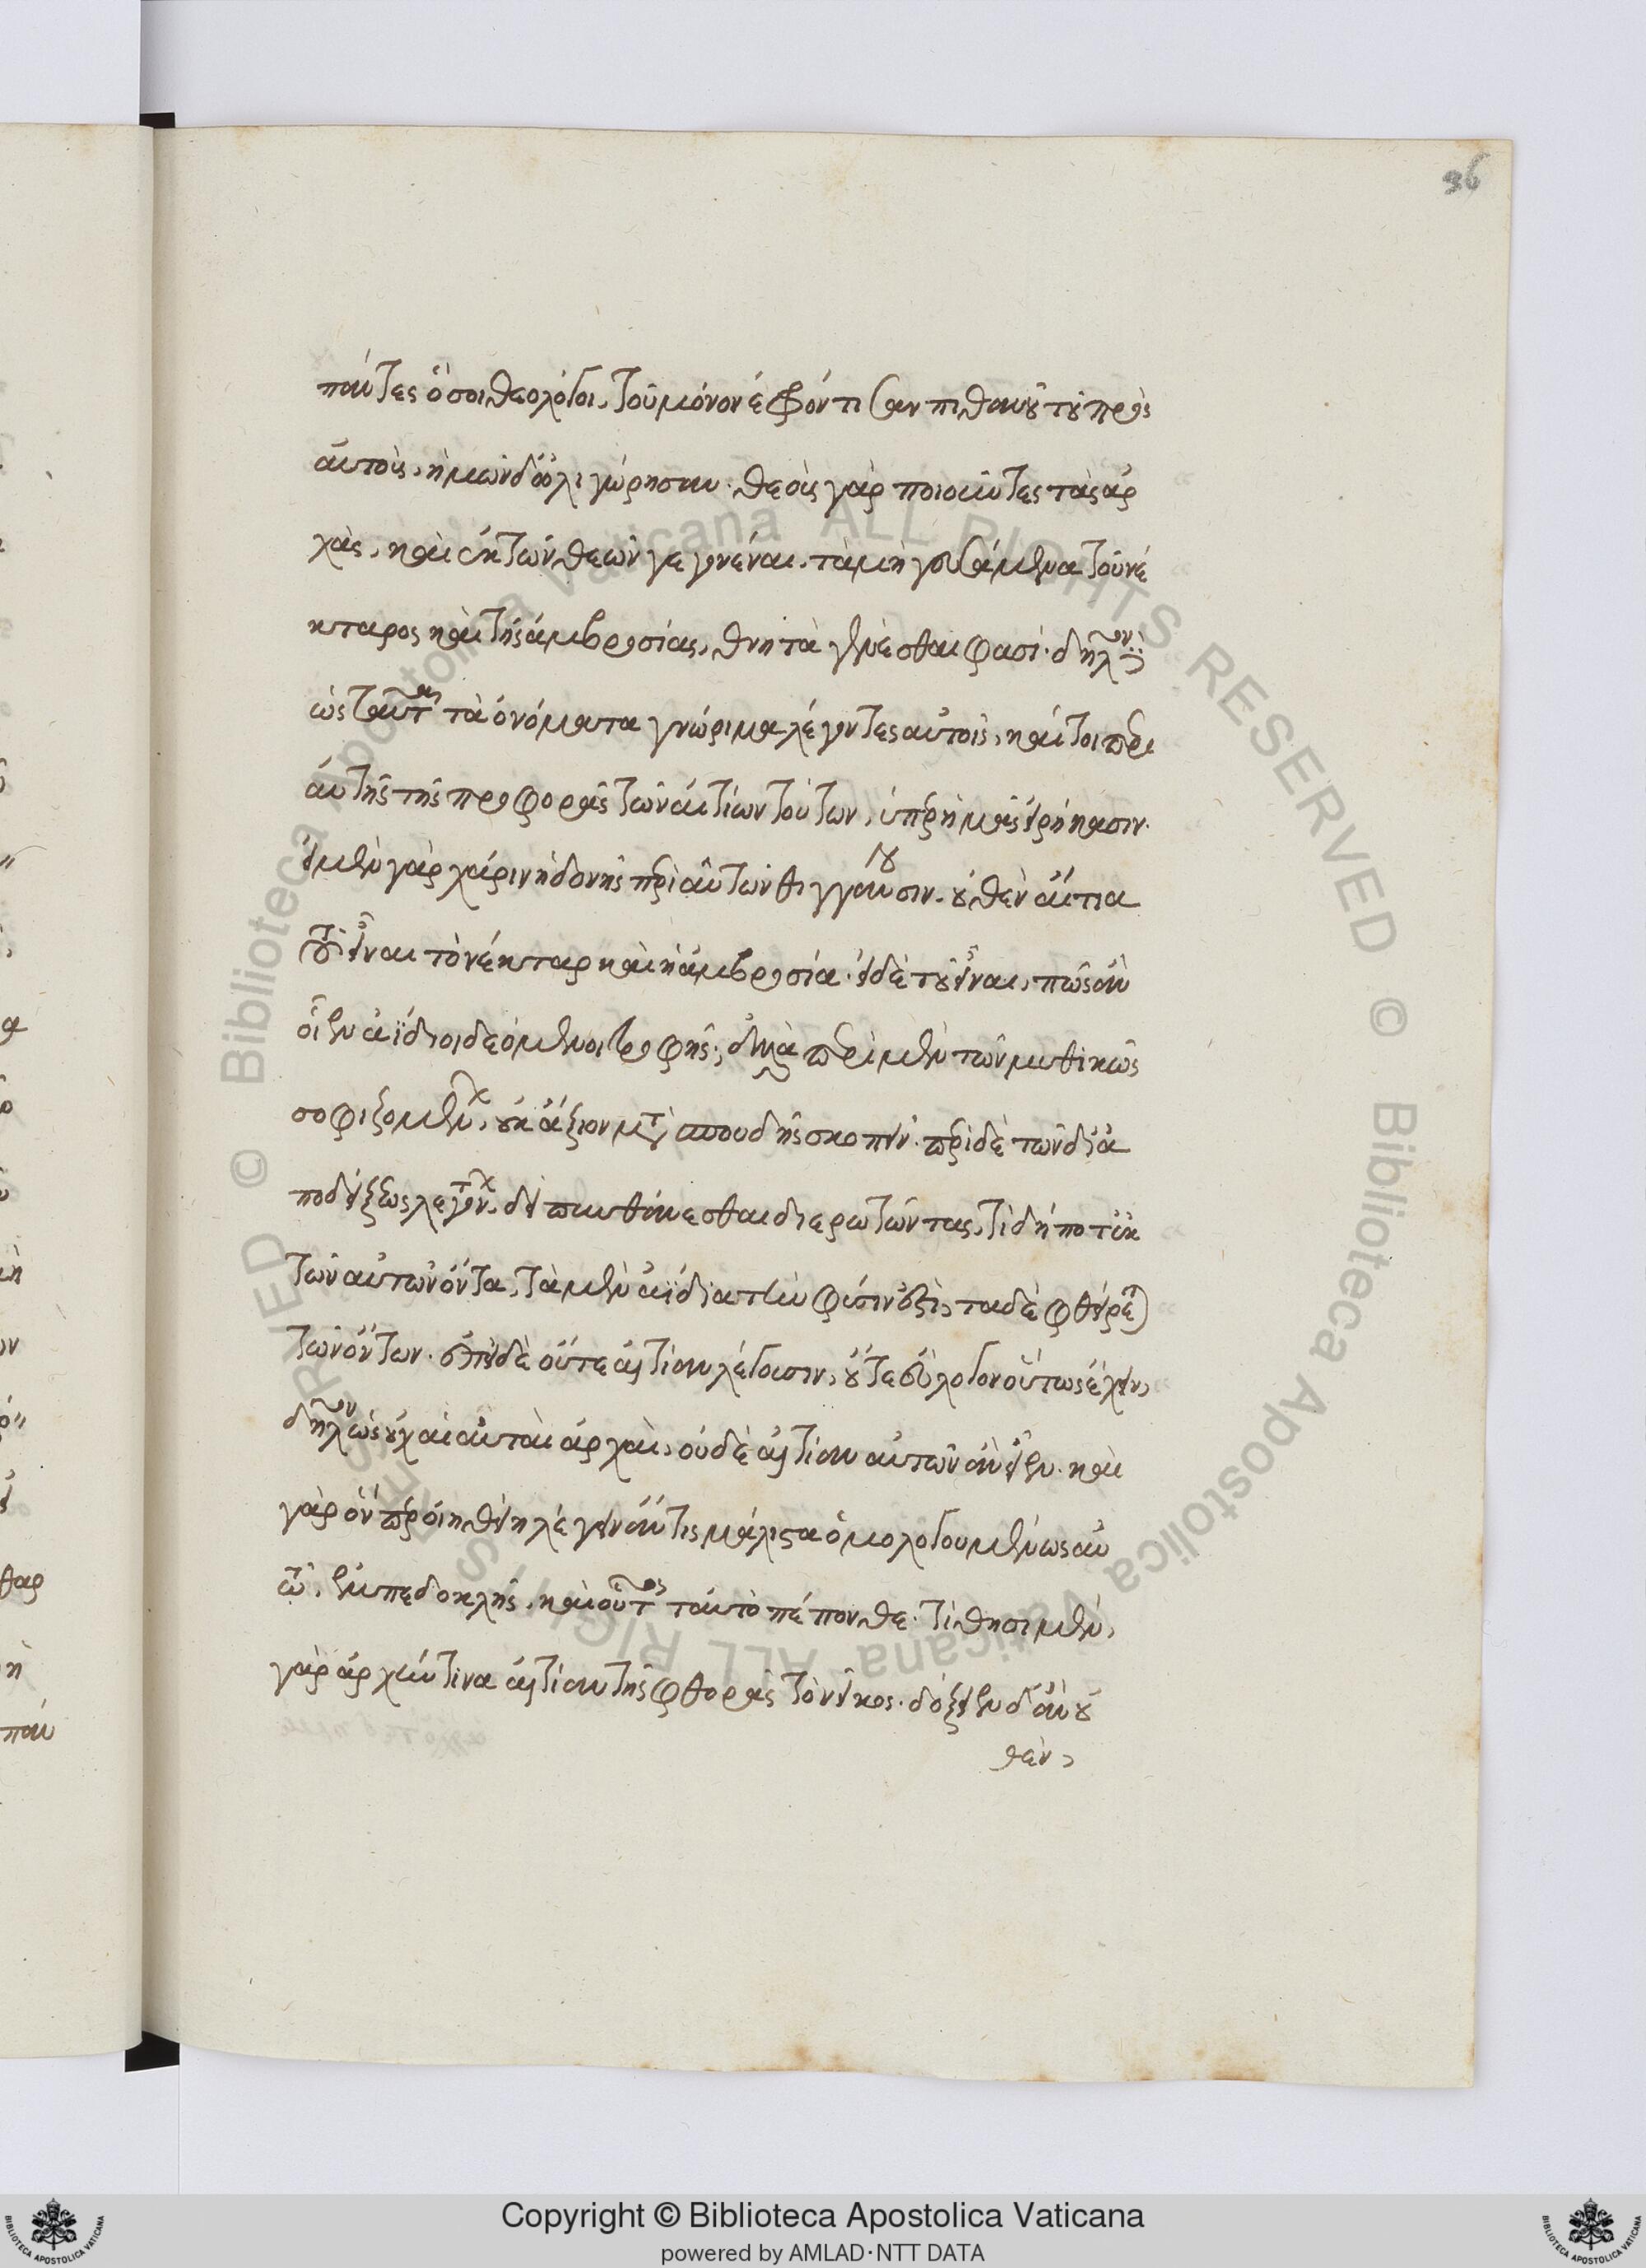 36
πάντες ὅσοι θεολόγοι, τοῦ μόνον ἐφρόντισαν πιθανοῦ τοῦ πρὸς
αὐτοὺς, ἡμῶν δ' ὀλιγώρησαν. θεοὺς γὰρ ποιοῦντες τὰς ἀρ
χὰς, καὶ ἐκ τῶν θεῶν γεγονέναι, τὰ μὴ γευσάμενα τοῦ νέ
κταρος καὶ τῆς ἀμβροσίας, θνητὰ γενέσθαι φασί. δῆλον
ὡς ταῦτα τὰ ὀνόματα γνώριμα λέγοντες αὐτοῖς, καίτοι περὶ
αὐτῆς τῆς προφορᾶς τῶν αἰτίων τούτων, ὑπὲρ ἡμᾶς εἰρήκασιν.
εἰ μὲν γὰρ χάριν ἡδονῆς περὶ αὐτῶν θιγγάνουσιν, οὐθὲν αἴτια
τοῦ εἶναι τὸ νέκταρ καὶ ἡ ἀμβροσία. εἰ δὲ τοῦ εἶναι, πῶς ἂν
εἶεν ἀΐδιοι δεόμενοι τροφῆς; ἀλλὰ περὶ μὲν τῶν μυθικῶς
σοφιζομένων, οὐκ ἄξιον μετὰ σπουδῆς σκοπεῖν. περὶ δὲ τῶν δι' ἀ
ποδείξεως λεγόντων, δεῖ πυνθάνεσθαι διερωτῶντας, τί δή ποτ' ἐκ
τῶν αὐτῶν ὄντα, τὰ μὲν ἀΐδια τὴν φύσιν ἐστὶ, τὰ δὲ φθείρεται
τῶν ὄντων. ἐπεὶ δὲ οὔτε αἰτίαν λέγουσιν, οὔτε εὔλογον οὕτως ἔχειν,
δῆλον ὡς οὐχ αἱ αὐταὶ ἀρχαὶ, οὐδὲ αἰτίαι αὐτῶν ἂν εἶεν. καὶ
γὰρ ὃν περ οἰηθείη λέγειν ἄν τις μάλιστα ὁμολογουμένως αὑ
τῷ, ἐμπεδοκλῆς, καὶ οὗτος ταὐτὸ πέπονθε. τίθησι μὲν,
γὰρ ἀρχήν τινα αἰτίαν τῆς φθορᾶς τὸ νεῖκος. δόξειεν δ' ἂν οὐ
θὲν,
Copyright © Biblioteca Apostolica Vaticana
powered by AMLAD·NTT DATA